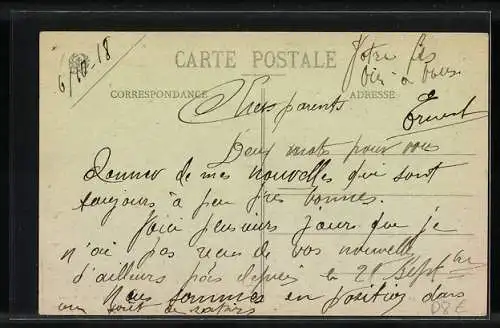 6/10-18
CARTE POSTALE
Votre fils
à vous
CORRESPONDANCE
ADRESSE
Chers parents
Ernest
Deux mots pour vous
donner de mes nouvelles qui sont
toujours à peu près bonnes.
Voici plusieurs jours que je
n'ai pas reçu de vos nouvelle
d'ailleurs pas depuis le 28 Septbre
Nous sommes en position dans
un